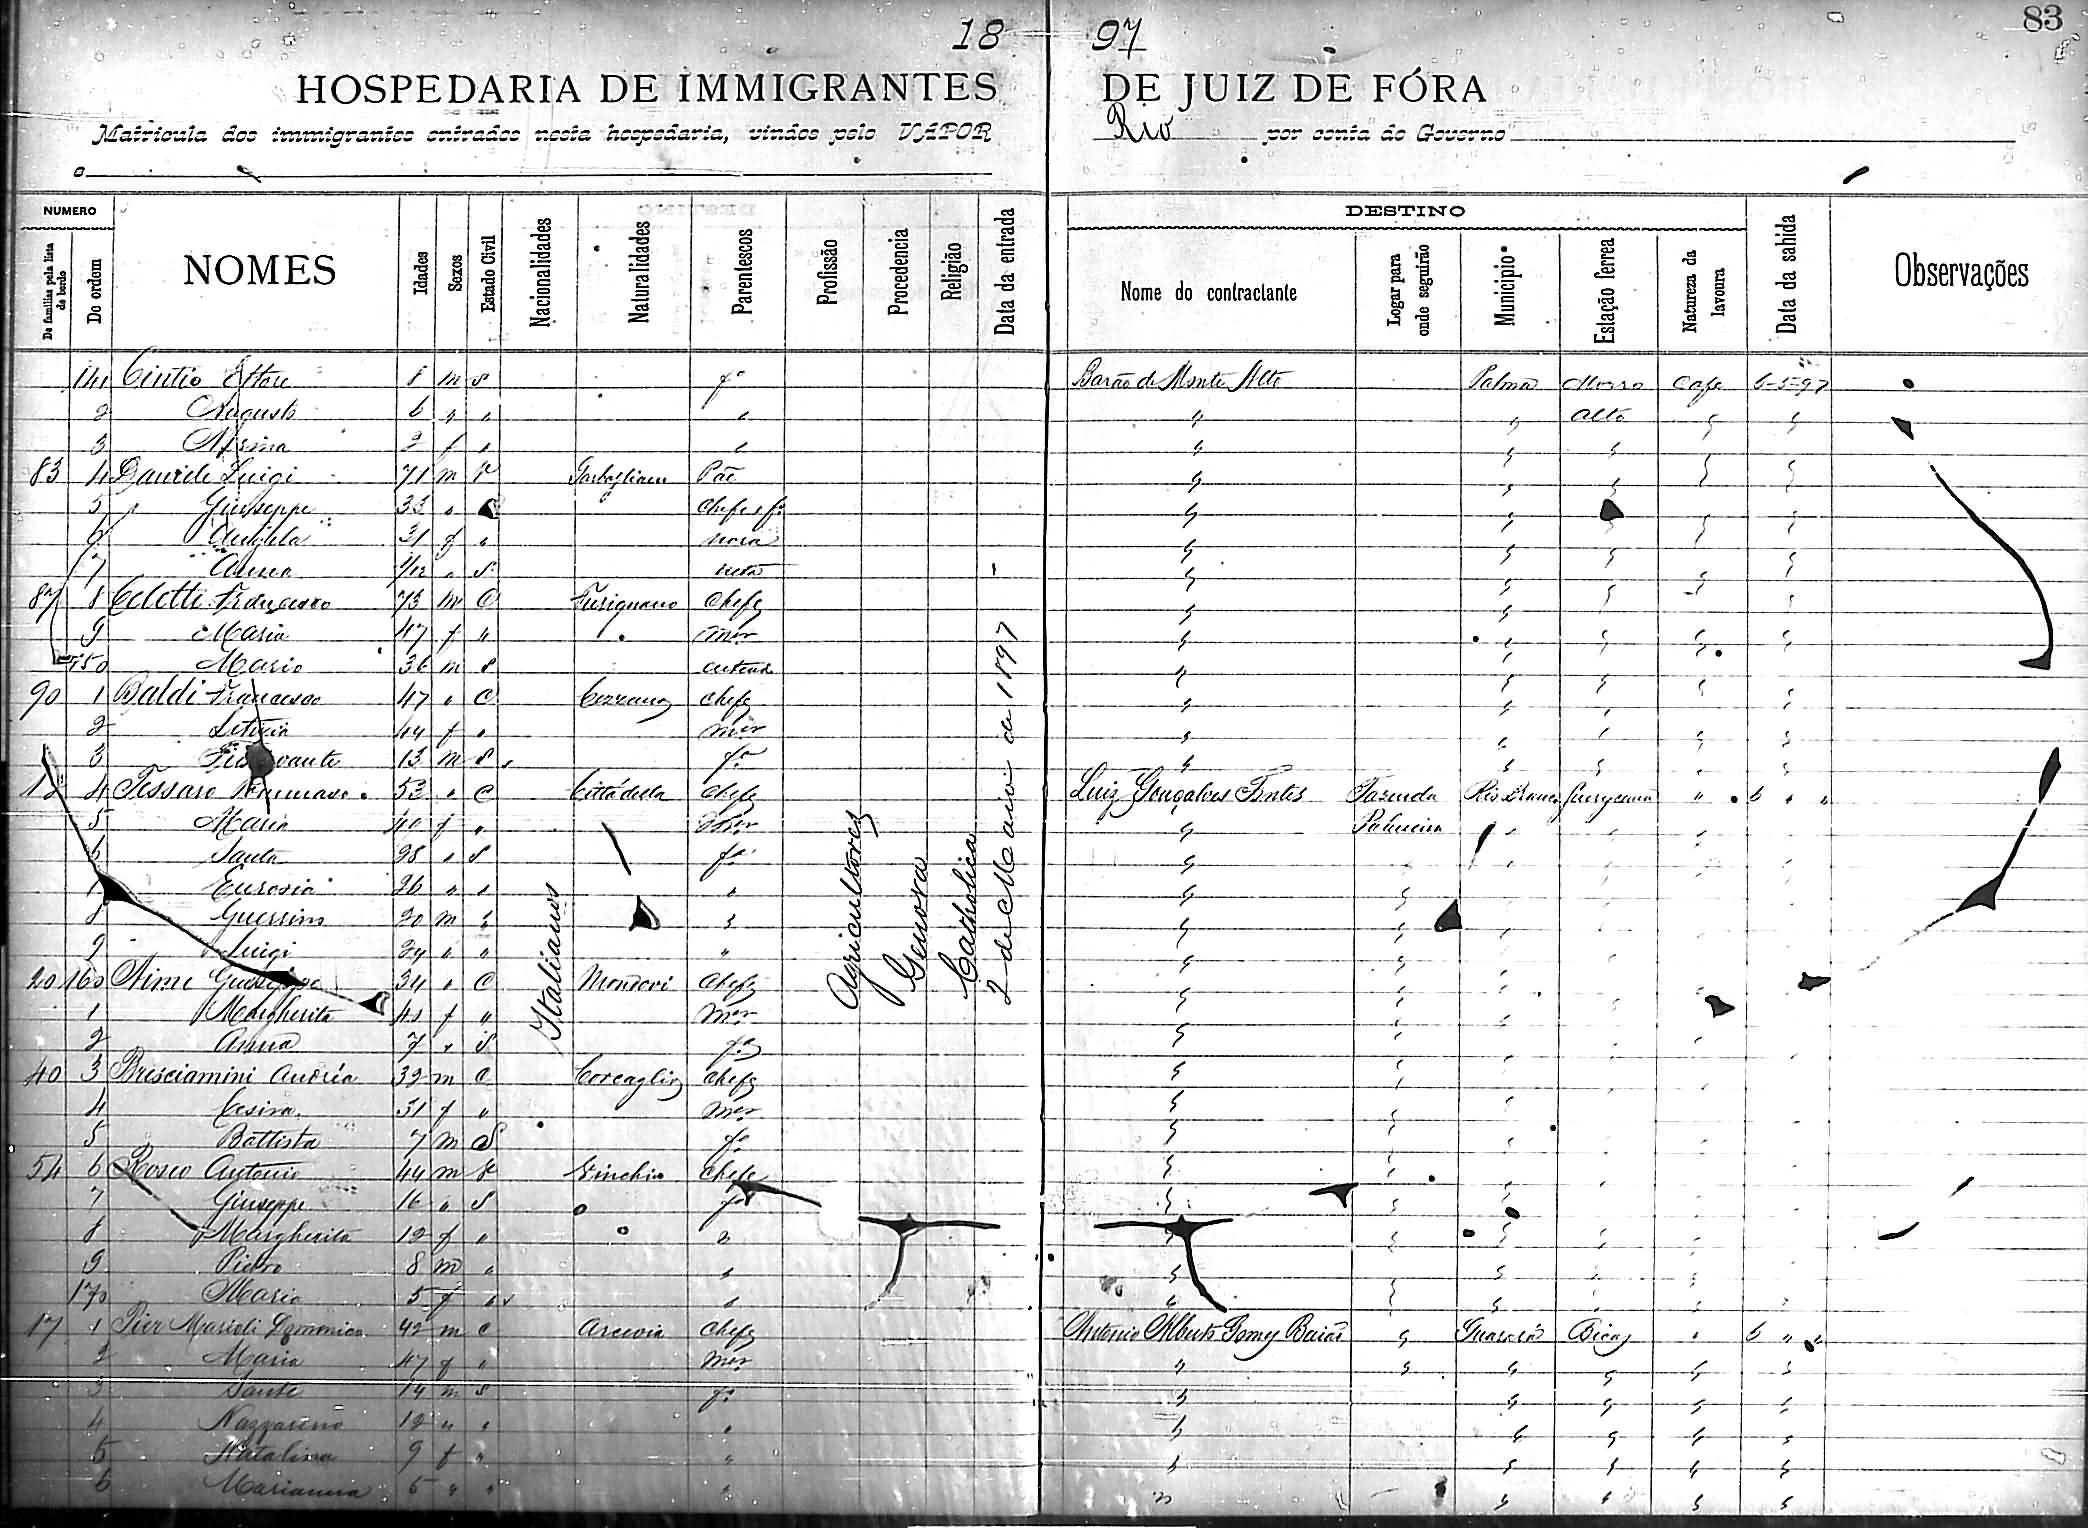 83
18 97
HOSPEDARIA DE IMMIGRANTES DE JUIZ DE FÓRA
Matricula dos immigrantes entrados nesta hospedaria, vindos pelo VAPOR Rio por conta do Governo
o
NUMERO
De familias pela lista de bordo
De ordem
NOMES
Idades
Sexos
Estado Civil
Nacionalidades
Naturalidades
Parentescos
Profissão
Procedencia
Religião
Data da entrada
DESTINO
Nome do contractante
Logar para onde seguirão
Municipio
Estação ferrea
Natureza da lavoura
Data da sahida
Observações
141 Cintio Ettore 8 m s fo Barão de Monte Alto Palma Morro Cafe 6-5-97
2 Augusto 6 " " " " " Alto " "
3 2 f " " " " " " "
83 4 Daniele Luigi 71 m V Pae " " " " "
5 Giuseppe 33 " C Chefe e fo " " " "
6 Angela 31 f " nora " " " " "
7 Anna 1/12 " S neta " " " " "
87 8 Celetti Francesco 73 m C Fusignano Chefe " " " " "
9 Maria 47 f " mer " " " " "
150 Mario 36 m S " " " " "
90 1 Baldi Francesco 47 " C Chefe " " " " "
2 Letizia 44 f " mer " " " " "
3 13 m S fo " " " " "
12 4 Tessaro Tommaso 53 " C Cittadella Chefe Luiz Gonçalves Fontes Fazenda Rio Branco " 6 " "
5 Maria 40 f " Mer " Palmeira "
6 Santa 28 " S fa "
7 Eurosia 26 " " " "
8 Guerrino 20 m " " "
9 Luigi 24 " " " "
20 160 Aime Giuseppe 34 " C Mondovi Chefe "
1 Margherita 40 f " Mer "
2 Anna 7 " S fa "
40 3 Bresciamini Andrea 32 m C Chefe "
4 Cesira 31 f " Mer "
5 Battista 7 m S fo "
54 6 Antonio 44 m V Vinchio Chefe "
7 Giuseppe 16 " S fo "
8 Margherita 12 f " " "
9 Pietro 8 m " " "
170 Maria 5 f " " "
17 1 Pier Marioli Domenico 42 m C Arcevia Chefe Antonio Alberto Gomes Baião " Guarará Bicas " 6 " "
2 Maria 47 f " Mer " " " " " "
3 Sante 14 m S fo " " " " "
4 Nazzareno 12 " " " " " " " "
5 Natalina 9 f " " " " " " "
6 Marianna 5 " " " " " " " "
Italianos
Agricultores
Genova
Catholica
2 de Maio de 1897